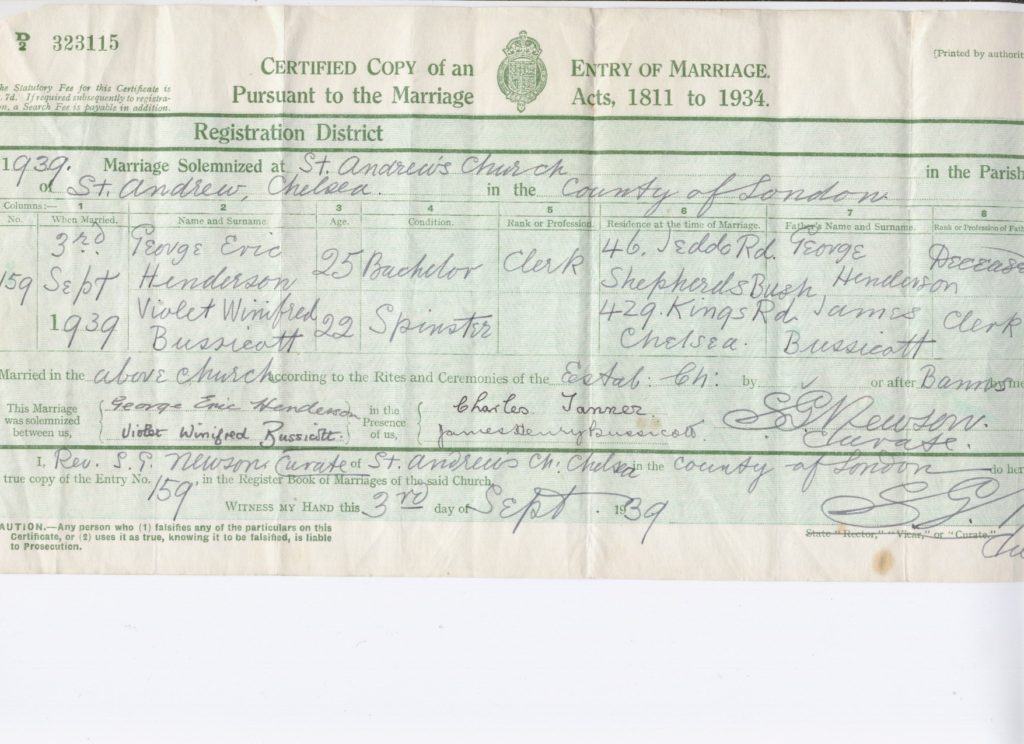 D/2 323115
CERTIFIED COPY of an ENTRY OF MARRIAGE.
{Printed by authorit
he Statutory Fee for this Certificate is
. 7d. If required subsequently to registra-
n, a Search Fee is payable in addition.
Pursuant to the Marriage Acts, 1811 to 1934.
Registration District
1939. Marriage Solemnized at St. Andrew's Church in the Parish
of St. Andrew, Chelsea. in the County of London
Columns:— 1 2 3 4 5 6 7 8
No. When Married. Name and Surname. Age. Condition. Rank or Profession. Residence at the time of Marriage. Father's Name and Surname. Rank or Profession of Fath
159 3rd Sept 1939
George Eric Henderson 25 Bachelor Clerk 46. Jeddo Rd. Shepherds Bush George Henderson Deceased
Violet Winifred Bussicott 22 Spinster 429. Kings Rd. Chelsea. James Bussicott Clerk
Married in the above church according to the Rites and Ceremonies of the Estab: Ch: by or after Banns by me
This Marriage was solemnized between us, { George Eric Henderson Violet Winifred Bussicott. } in the Presence of us, { Charles Tanner. James Henry Bussicott. S. G. Newson. Curate.
I, Rev. S. G. Newson Curate of St. Andrew's Ch: Chelsea in the County of London do her
true copy of the Entry No. 159, in the Register Book of Marriages of the said Church.
WITNESS MY HAND this 3rd day of Sept. 1939
S. G.
State "Rector," "Vicar," or "Curate."
AUTION.—Any person who (1) falsifies any of the particulars on this
Certificate, or (2) uses it as true, knowing it to be falsified, is liable
to Prosecution.